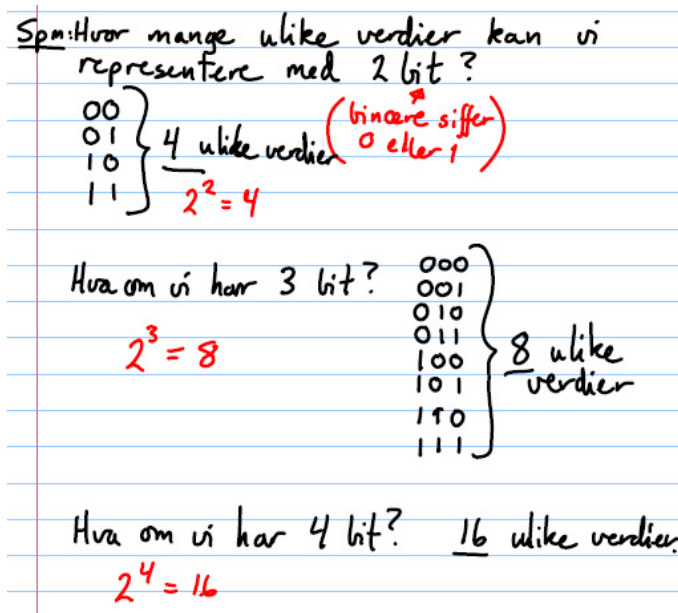 Spm: Hvor mange ulike verdier kan vi
representere med 2 bit?
(binære siffer
0 eller 1)
00
01
10
11
4 ulike verdier
2² = 4
Hva om vi har 3 bit?
2³ = 8
000
001
010
011
100
101
110
111
8 ulike
verdier
Hva om vi har 4 bit? 16 ulike verdier.
2⁴ = 16